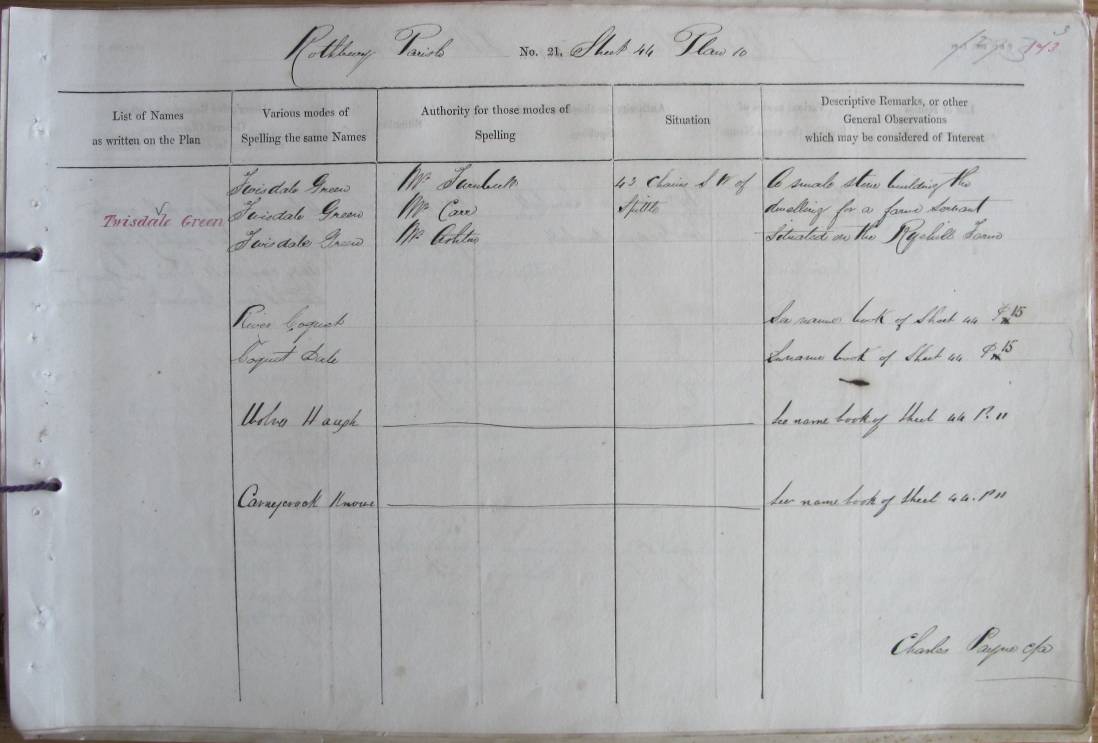 Rothbury Parish No. 21. Sheet 44 Plan 10
143
List of Names
as written on the Plan
Various modes of
Spelling the same Names
Authority for those modes of
Spelling
Situation
Descriptive Remarks, or other
General Observations
which may be considered of Interest
Twisdale Green
Twisdale Green Mr Turnbull 43 Chains S W of A small stone building the
Twisdale Green Mr Carr Spittle dwelling for a farm servant
Twisdale Green Mr Ashton situated on the Ryehill Farm
River Coquet See name book of Sheet 44 P 15
Coquet Dale See name book of Sheet 44 P 15
Wolves Haugh See name book of Sheet 44 P. 11
Carneycrook Knowe See name book of Sheet 44. P 11
Charles Payne c/a